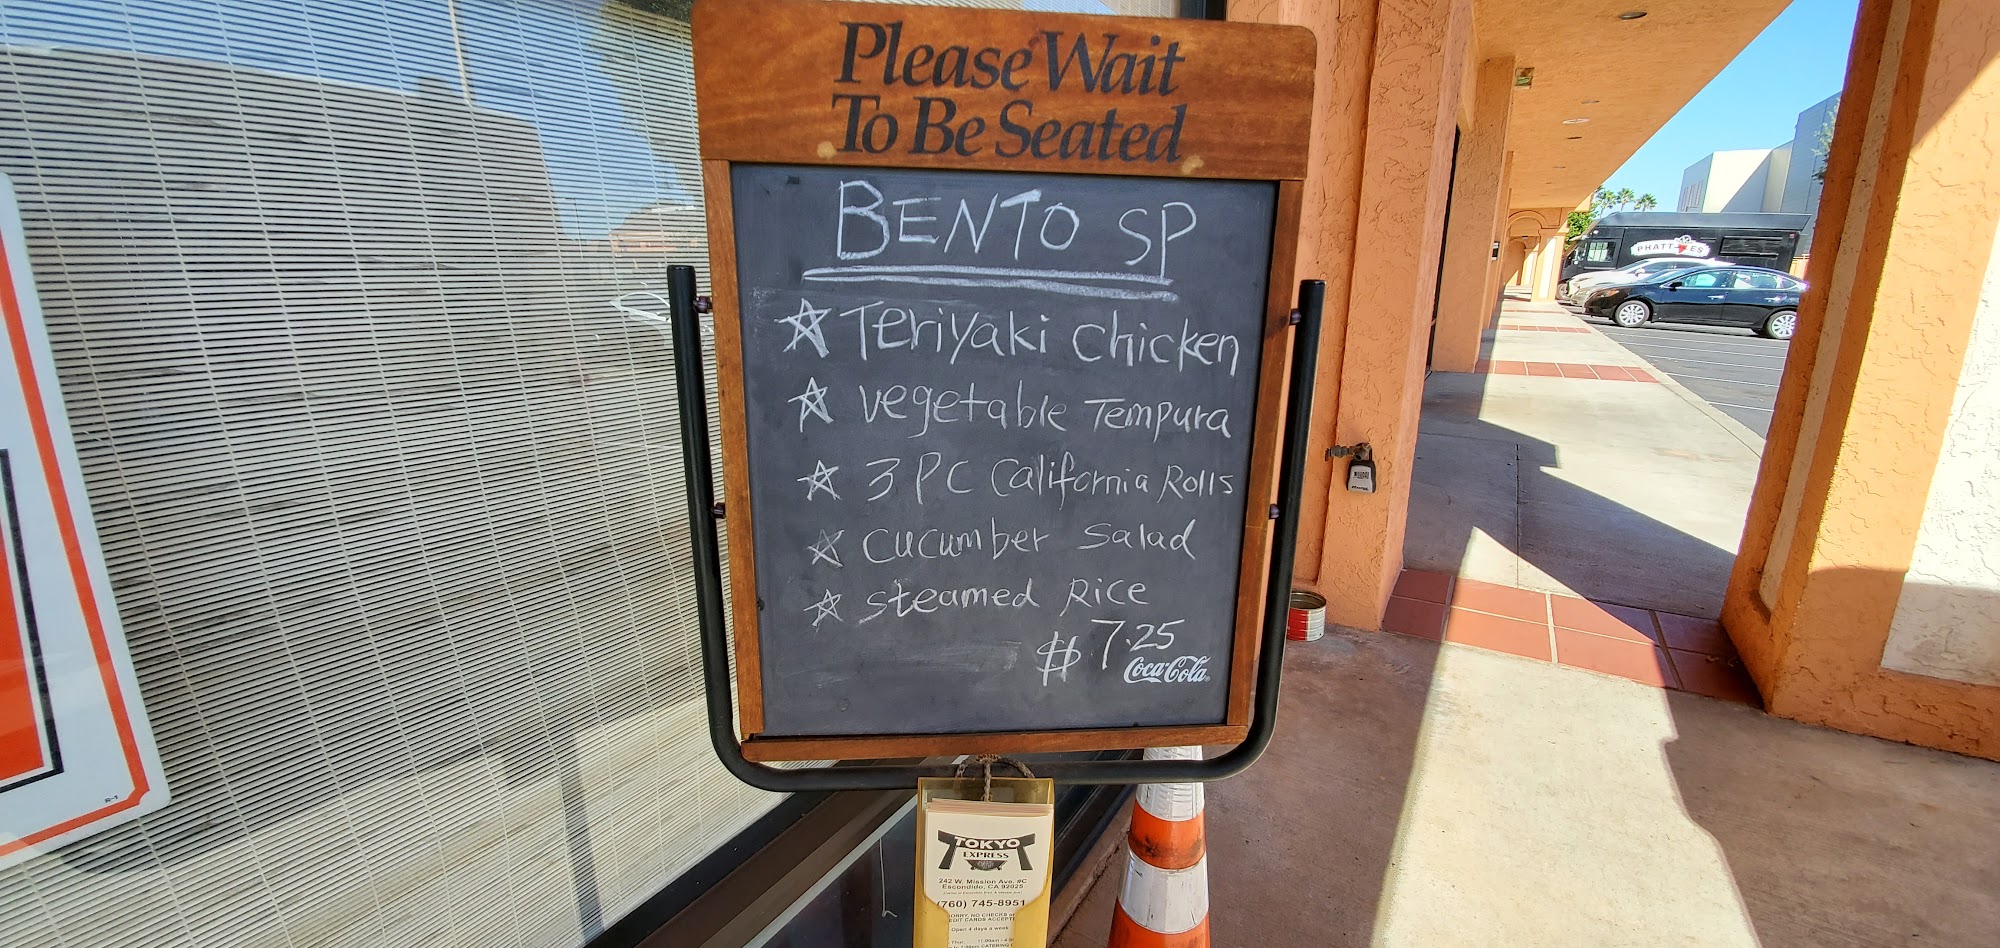 Please Wait
To Be Seated
BENTO SP
Teriyaki chicken
vegetable Tempura
3 PC California Rolls
cucumber salad
steamed Rice
$ 7.25
Coca-Cola
TOKYO
EXPRESS
242 W. Mission Ave. #C
Escondido, CA 92025
(760) 745-8951
SORRY, NO CHECKS
CREDIT CARDS ACCEPT
Open 4 days a week
PHATT
R-1